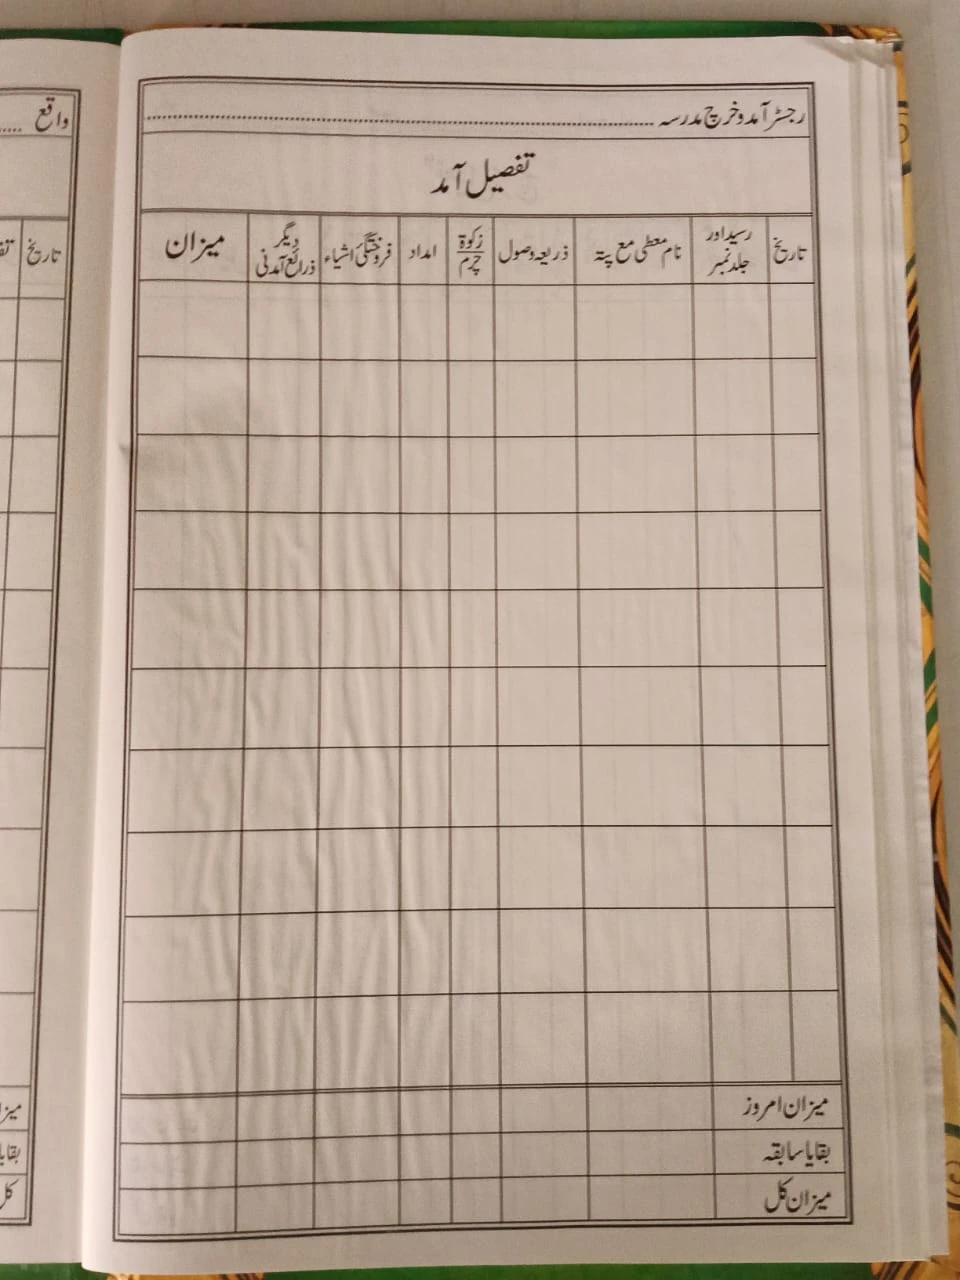 رجسٹر آمد و خرچ مدرسہ ........................................
تفصیل آمد
تاریخ
رسید اور
جلد نمبر
نام معطی مع پتہ
ذریعہ وصول
زکوٰۃ
چرم
امداد
فروختگئ اشیاء
دیگر
ذرائع آمدنی
میزان
میزان امروز
بقایا سابقہ
میزان کل
واقع ......
تاریخ